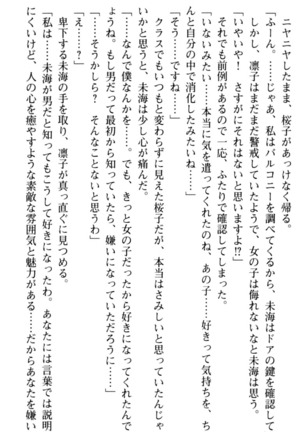 ニヤニヤしたまま、桜子があっけなく帰る。
「ふーん。……じゃあ、私はバルコニーを調べてくるから、未海はドアの鍵を確認して」
「いやいや！　さすがにそれはないと思いますよ!?」
しかし、凛子はまだまだ警戒していたようで、女の子は侮れないなと未海は思う。
それでも前例があるので一応、ふたりで確認してしまった。
「いないみたい……本当に気を遣ってくれたのね、あの子……好きって気持ちを、ち
ゃんと自分の中で消化したみたいね……」
「そう……ですね……」
クラスでもいつもと変わらずに見えた桜子だが、本当はさみしいと思っていたんじゃ
ないかと思うと、未海は少し心が痛んだ。
「……なんで僕なんかを……。でも、きっと女の子だったから好きになってくれたんで
しょうね。もし男だって最初から知っていたら、嫌いになっていただろうに……」
「……そうかしら？　そんなことないと思うわ」
「え……？」
卑下する未海の手を取り、凛子が真っ直ぐに見つめる。
「私は……未海が男だと知ってもこうして好きになったわ。あなたには言葉では説明し
にくいけど、人の心を癒やすような素敵な雰囲気と魅力がある……だからあなたを嫌い